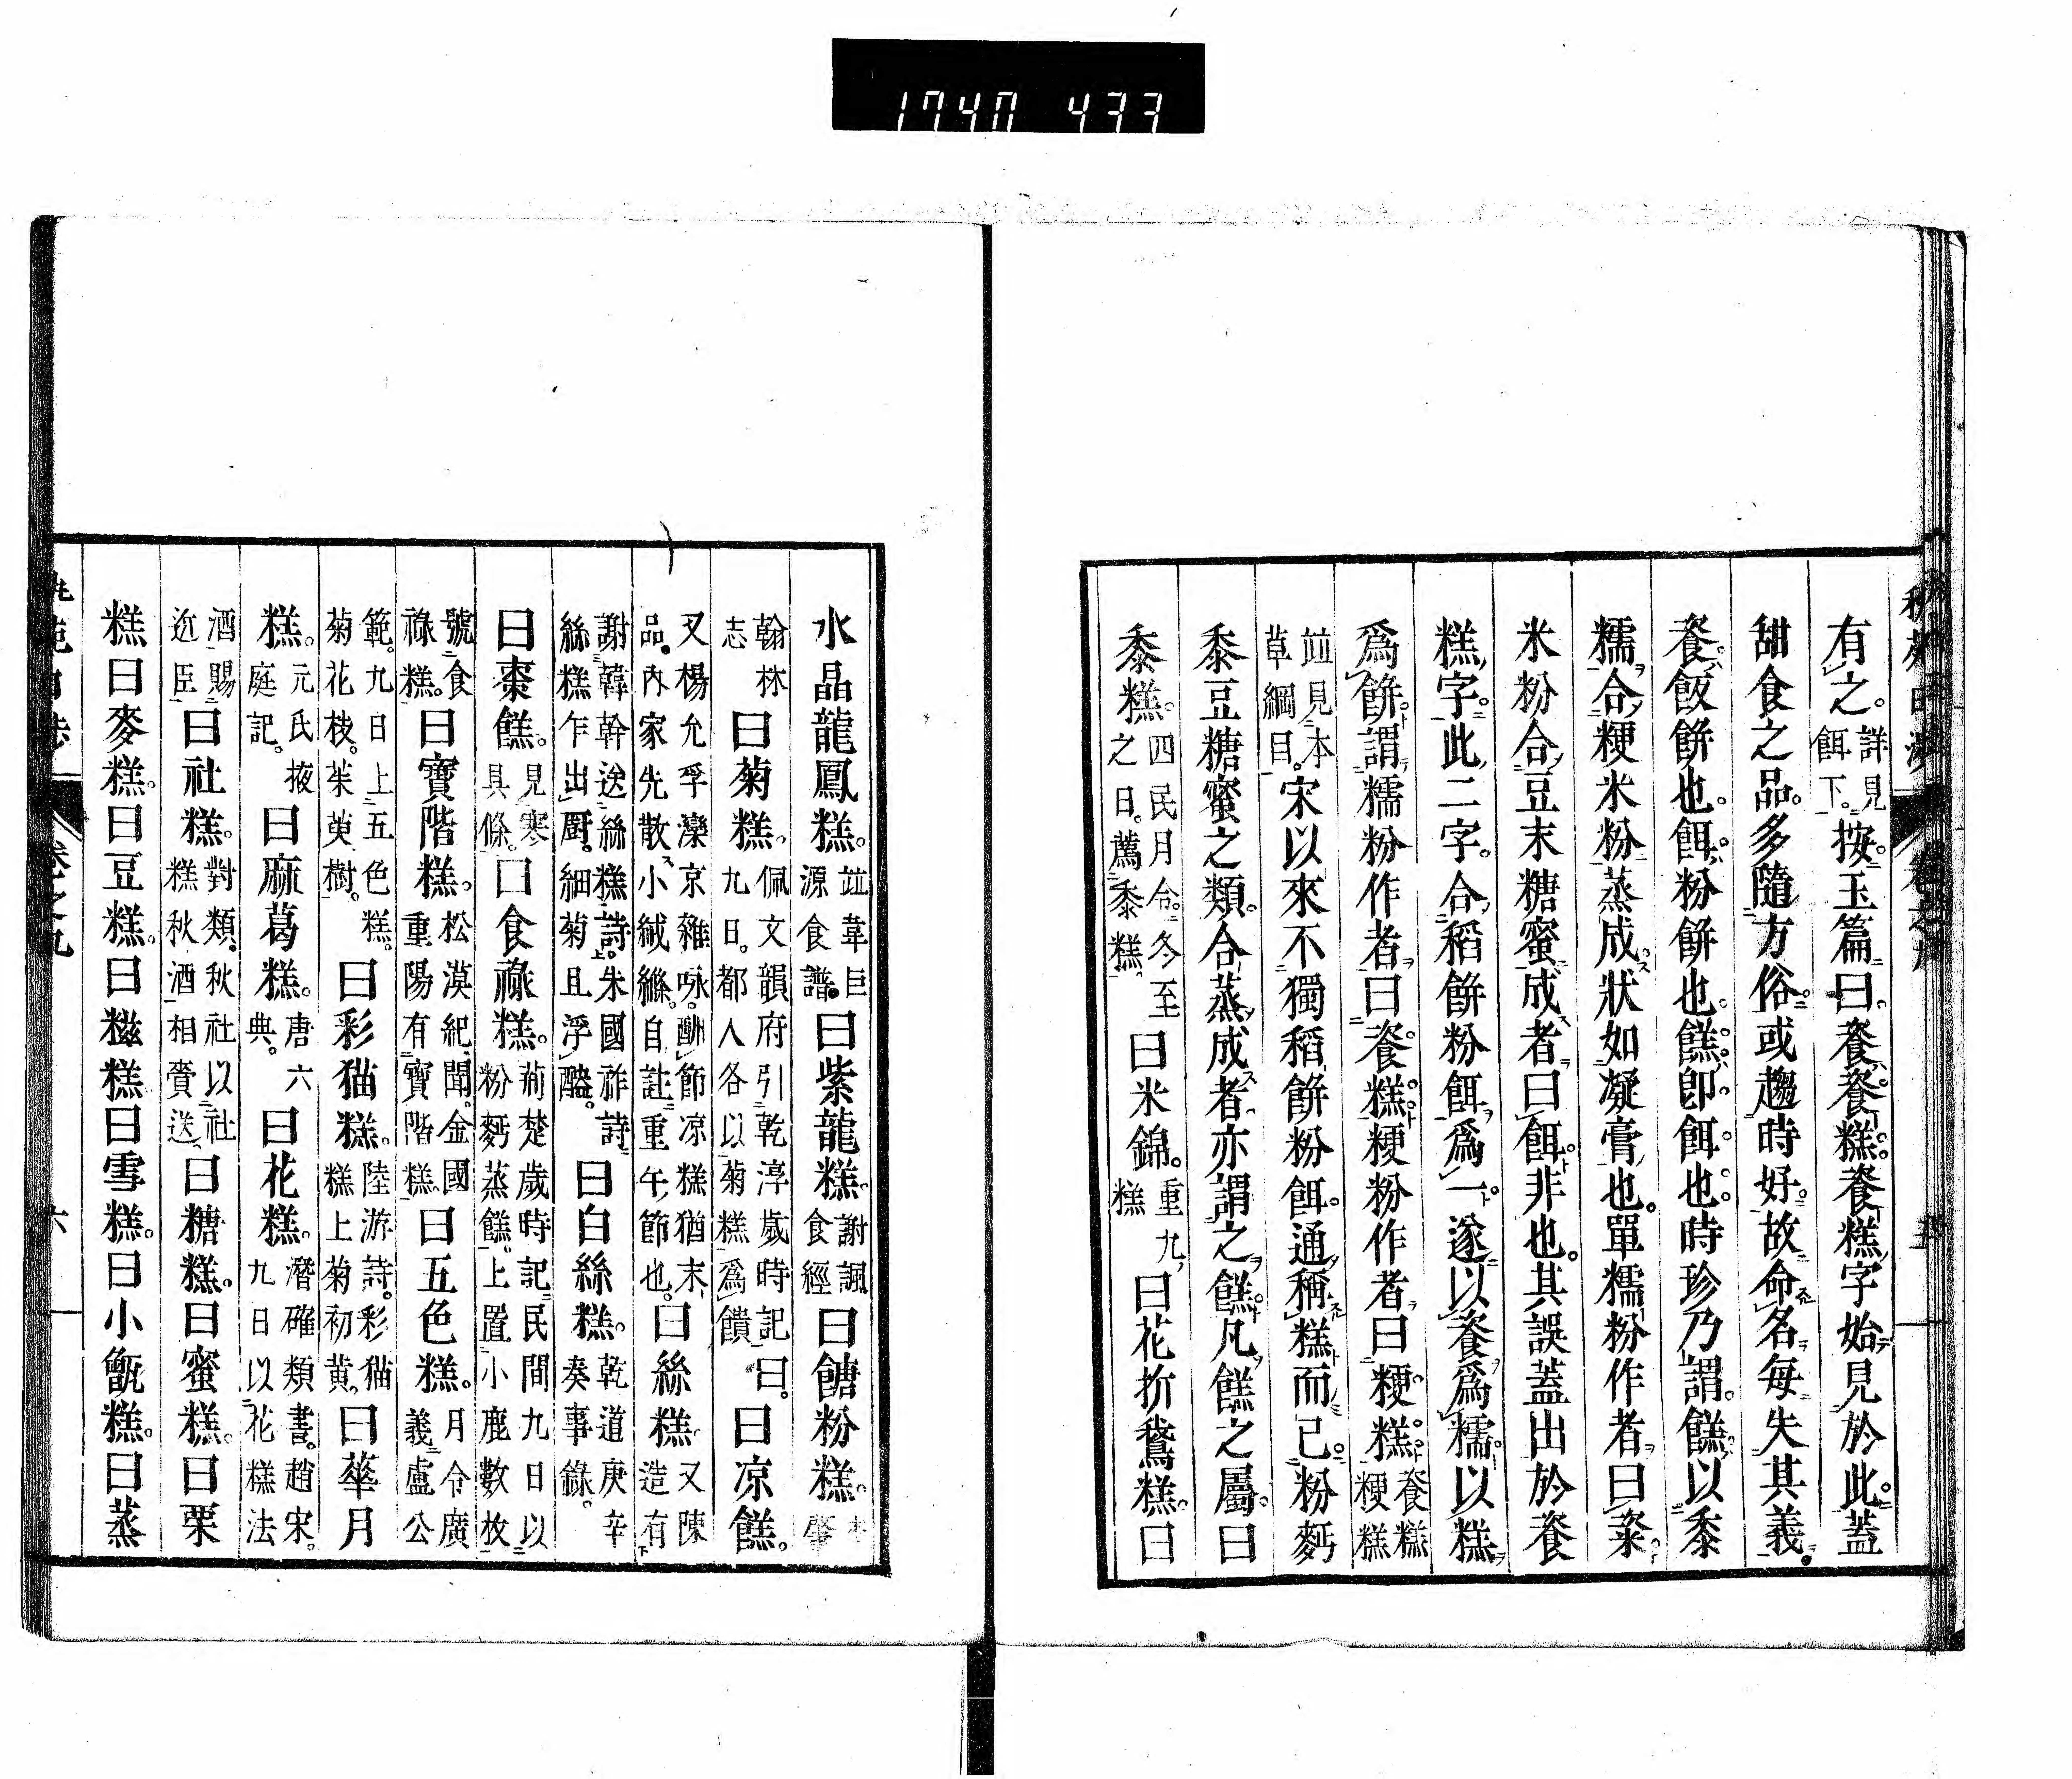 1740 433
有之。詳見餌下。按玉篇曰。餈餈糕餈糕字始見於此。蓋
甜食之品。多隨方俗。或趨時好。故命名每失其義。
餈。飯餅也。餌。粉餅也。餻。卽餌也。時珍乃謂。餻以黍
糯合粳米粉蒸成。狀如凝膏也。單糯粉作者曰粢。
米粉合豆末糖蜜成者曰餌。非也。其誤蓋出於餈
糕字。此二字。合稻餅粉餌爲一。遂以餈爲糯。以糕
爲餅。謂糯粉作者曰餈糕。粳粉作者曰粳糕。餈糕粳糕
竝見本草綱目。宋以來不獨稻餅粉餌。通稱糕而已。粉麪
黍豆糖蜜之類。合蒸成者。亦謂之餻。凡餻之屬。曰
黍糕。四民月令。冬至之日。薦黍糕。曰米錦。重九糕曰花折鵞糕。曰
水晶龍鳳糕。竝韋巨源食譜。曰紫龍糕。謝諷食經曰餹粉糕。
翰林志曰菊糕。佩文韻府引乾淳歲時記曰。九日。都人各以菊糕爲饋曰凉餻。
又楊允孚灤京雜咏。酬節凉糕猶末品。內家先散小絨絛。自註重午節也。曰絲糕。又陳造有
謝韓幹送絲糕詩。朱國祚詩。絲糕乍出厨。細菊且浮醠。曰白絲糕。乾道庚辛奏事錄。
曰棗餻。見寒具條。曰食祿糕。荊楚歲時記。民間九日以粉麪蒸餻。上置小鹿數枚。
號食祿糕。曰寶階糕。松漠紀聞。金國重陽有寶階糕曰五色糕。月令廣義。盧公
範。九日上五色糕。菊花枝。茱萸樹。曰彩猫糕。陸游詩。彩猫糕上菊初黄。曰蓽月
糕。元氏掖庭記。曰麻葛糕。唐六典。曰花糕。潛確類書。趙宋。九日以花糕法
酒賜近臣。曰社糕。對類。秋社以社糕秋酒相賚送。曰糖糕。曰蜜糕。曰栗
糕曰麥糕。曰豆糕。曰糍糕曰雪糕。曰小甑糕。曰蒸
卷之九
六